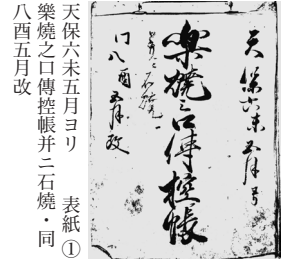 天保六未五月ヨリ　表紙①
樂燒之口傳控帳并ニ石燒・同
八酉五月改
天保六未五月ヨリ
樂燒之口傳控帳
并ニ石燒
同八酉五月改